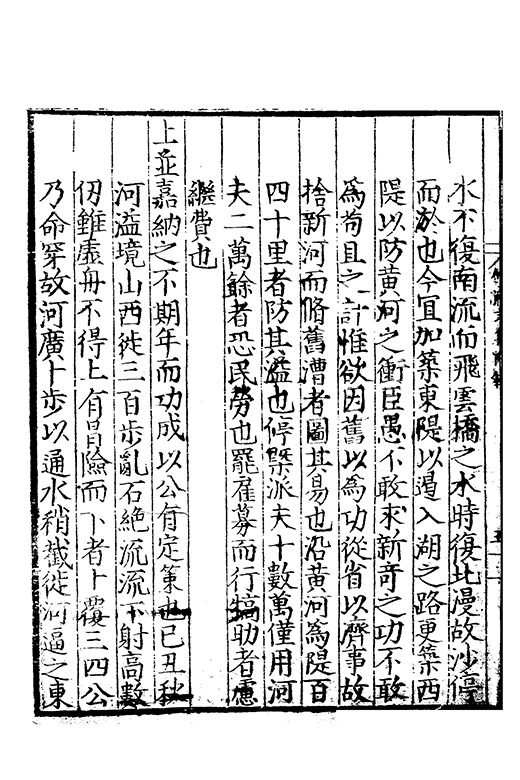 水不復南流而飛雲橋之水時復北漫故沙停
而於也今宜加築東隄以遏入湖之路更築西
隄以防黃河之衝臣愚不敢求新奇之功不敢
為苟且之計惟欲因舊以為功從省以齊事故
捨新河而脩舊漕者圖其易也沿黃河為隄百
四十里者防其溢也停槩派夫十數萬僅用河
夫二萬餘者恐民勞也罷雇募而行犒助者慮
繼費也
上並嘉納之不期年而功成以公有定策也已丑秋
河溢境山西徙三百步亂石絕流流下射高數
仞雖虛舟不得上有冒險而下者十覆三四公
乃命穿故河廣十步以通水稍殺徙河逼之東